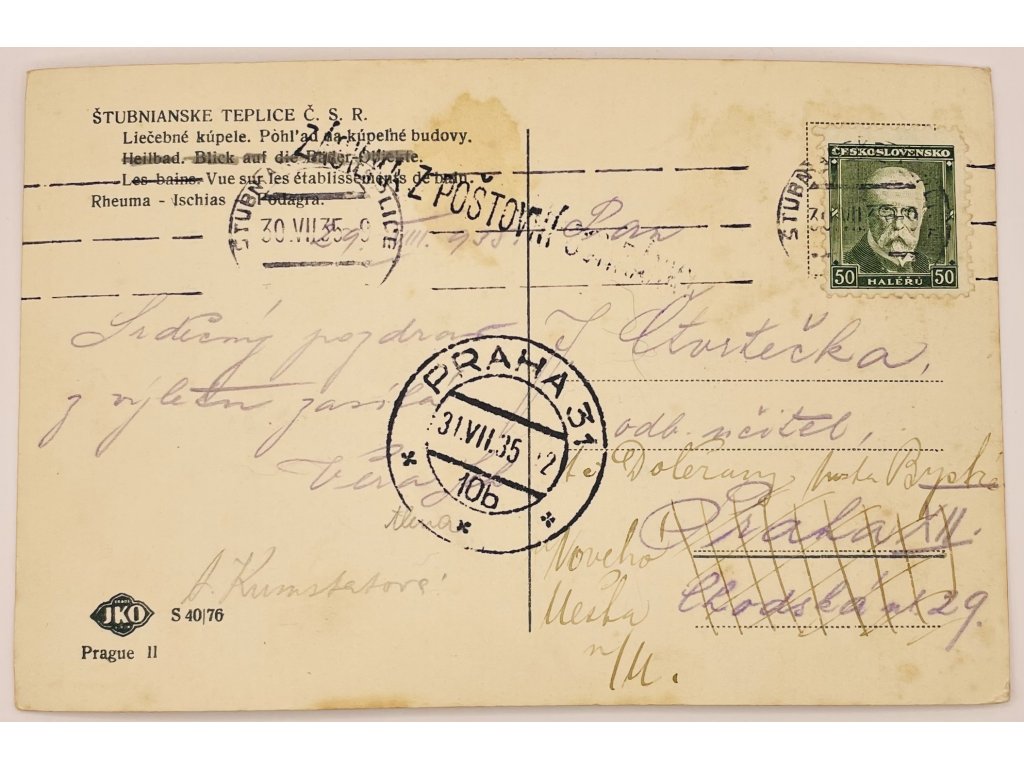 ŠTUBNIANSKE TEPLICE Č. S. R.
Liečebné kúpele. Pôhľad na kúpeľné budovy.
Heilbad. Blick auf die Bäder-Objekte.
Les bains. Vue sur les établissements de bain.
Rheuma - Ischias Podagra.
Z POŠTOVNÍ
30.VII.35-9
30.VII.35-9
ČESKOSLOVENSKO
50 HALÉŘŮ 50
Pan
Srdečný pozdrav
z výletu zasílá
Věra
Alena
A. Kumstatová
J. Čtvrtečka,
odb. učitel,
Dobřany pošta Bystré
Praha XII.
Chodská ul 29.
Nového
Města
n/M.
PRAHA 31
31.VII.35 -2
10b
JKO
S 40/76
Prague II